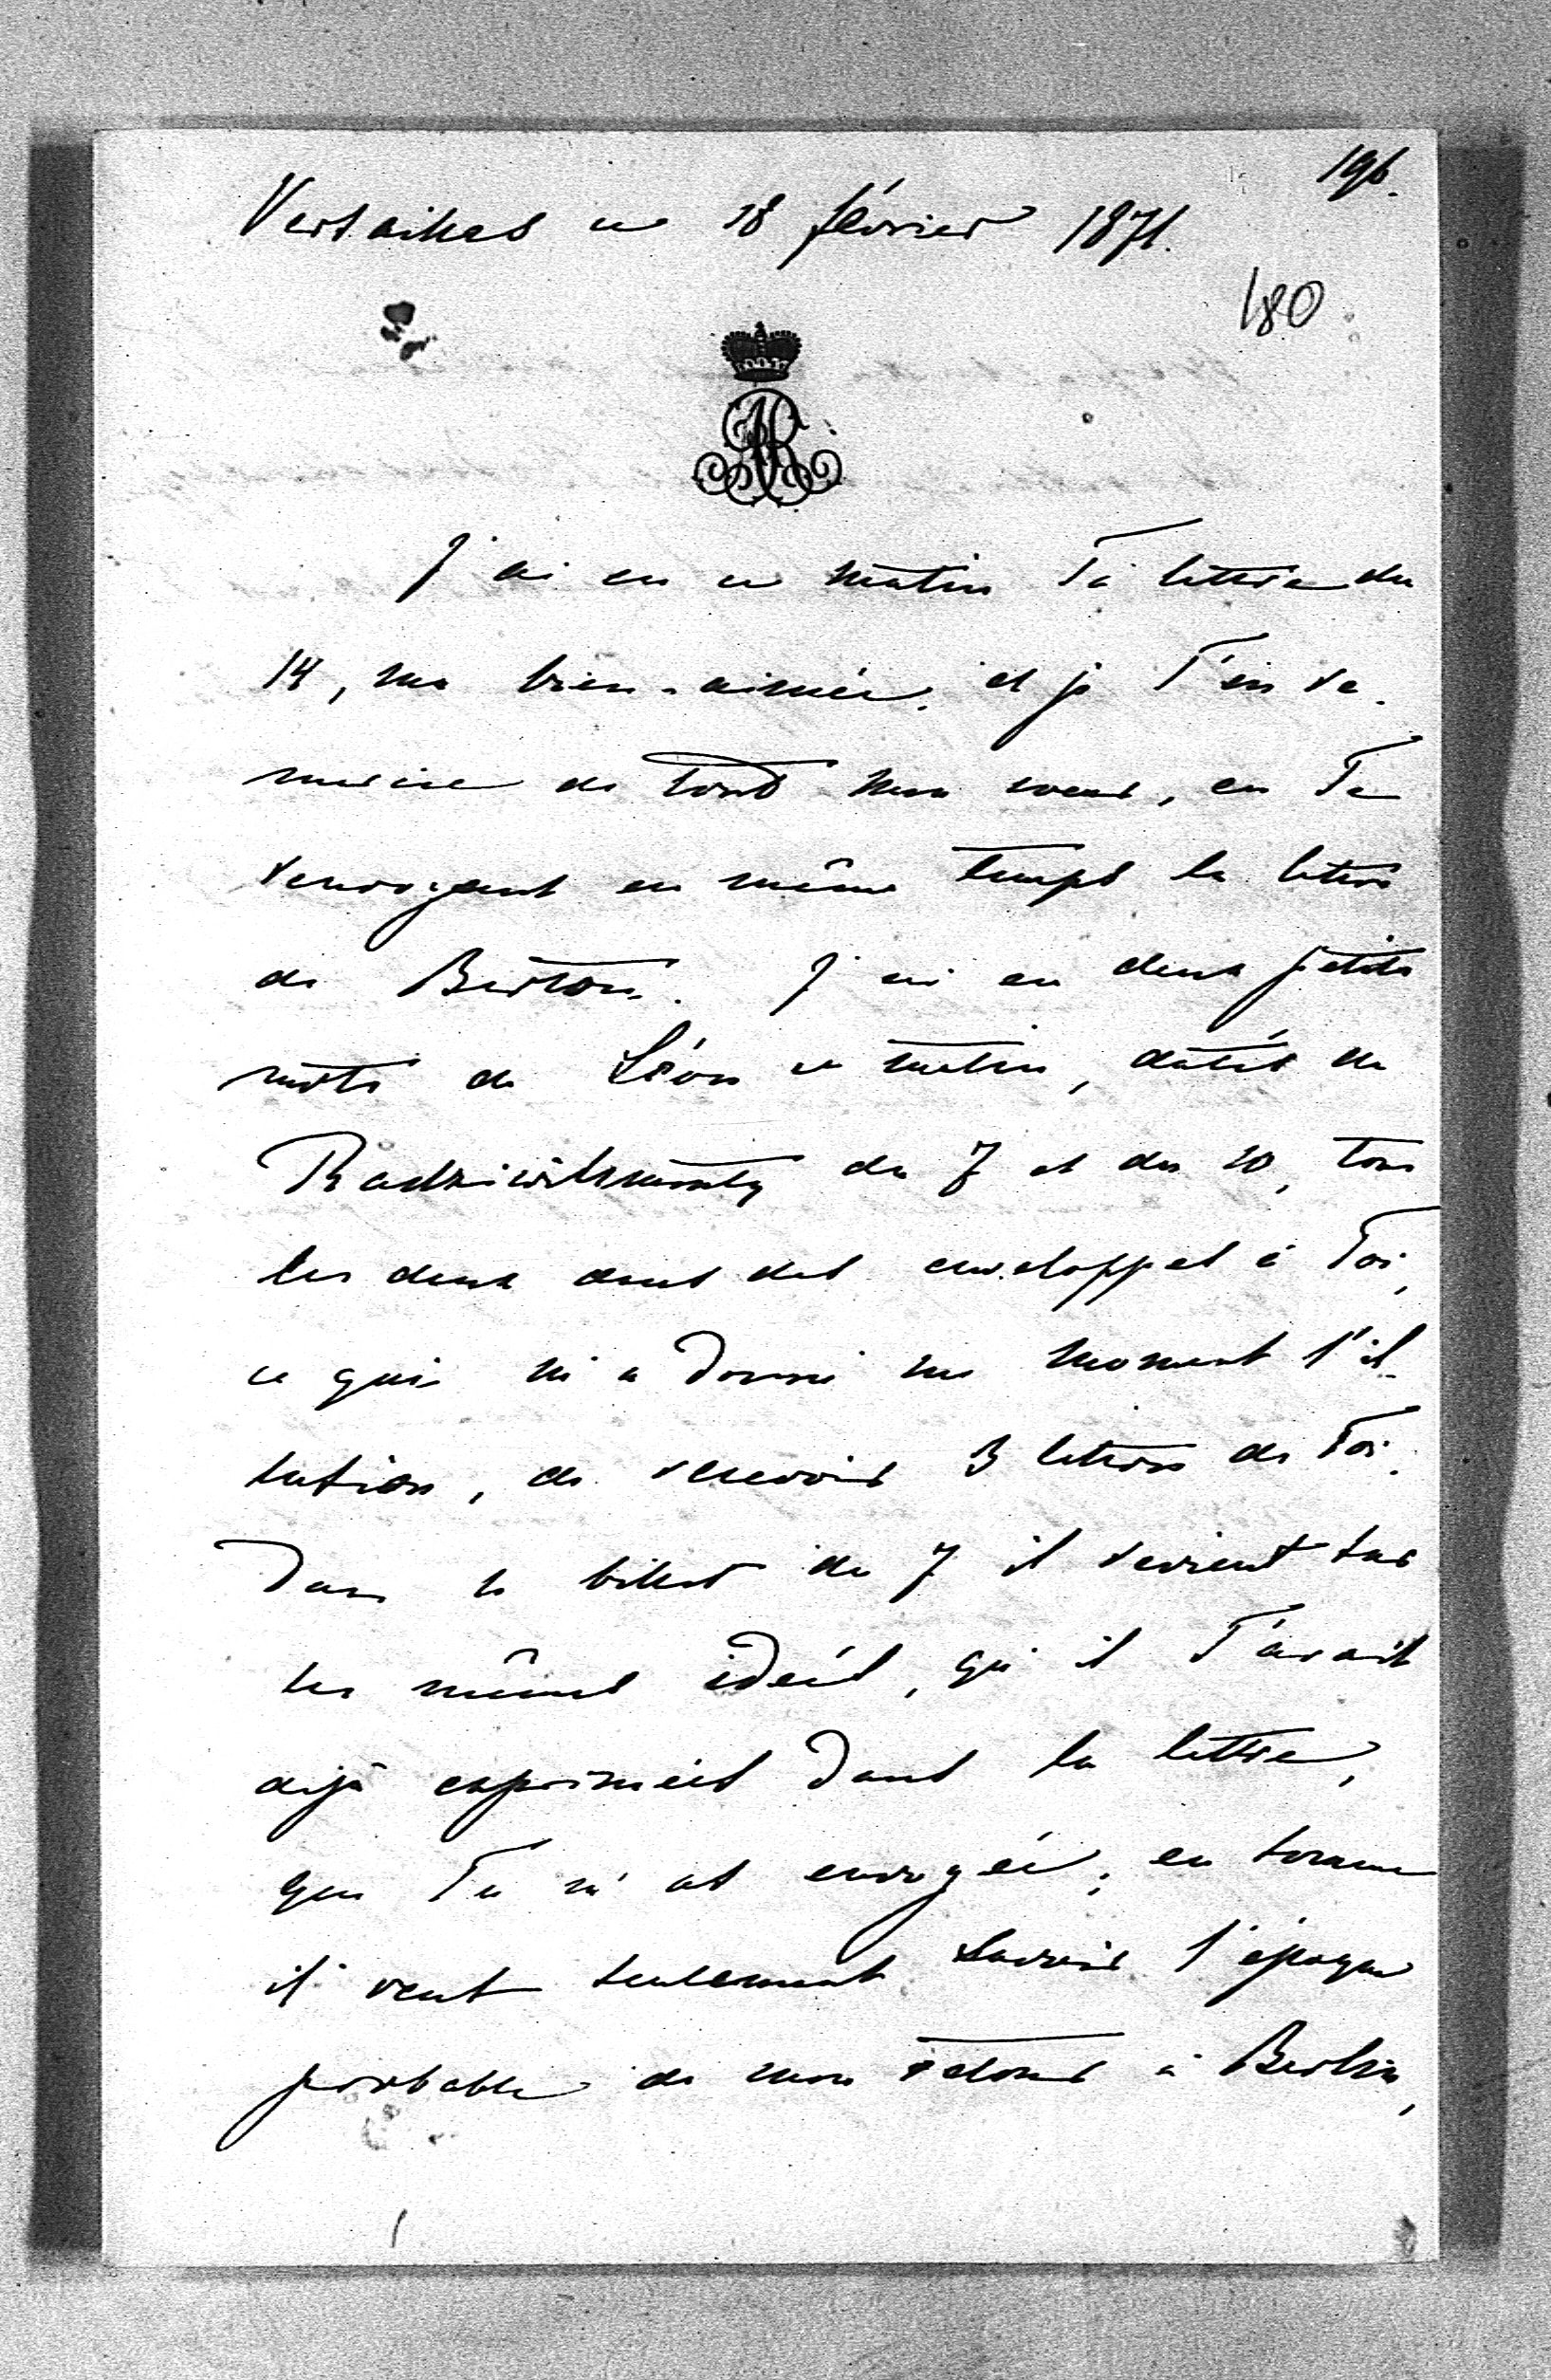 196.
Versailles ce 18 février 1871.
180
AR
J'ai eu ce matin Ta lettre du
14, ma bien-aimée, et je T'en re-
mercie de tout mon coeur, en Te
renvoyant en même temps la lettre
de Berton. J'ai eu deux petits
mots de Léon ce matin, datés de
Radziwilmonty du 7 et du 10, tous
les deux dans des enveloppes à Toi,
ce qui m'a donné un moment l'il-
lusion, de recevoir 3 lettres de Toi.
Dans le billet du 7 il revient sur
les mêmes idées, qu'il T'avait
déjà exprimées dans la lettre,
que Tu m'as envoyée; en somme
il veut seulement savoir l'époque
probable de mon retour à Berlin,